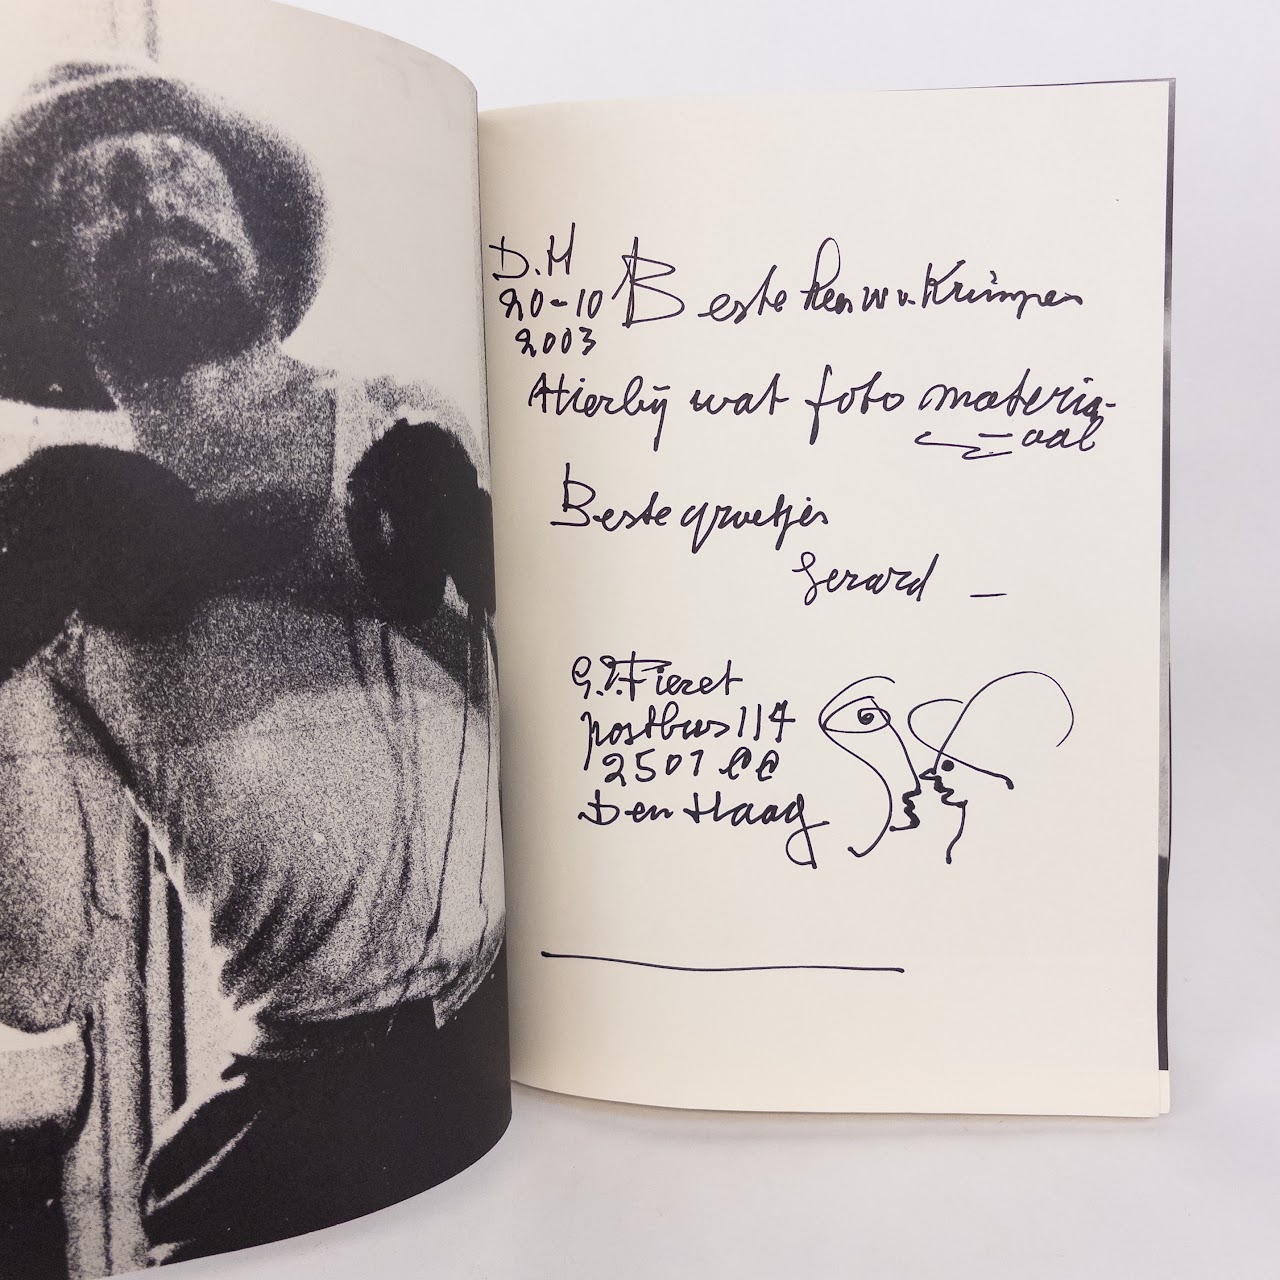 D.H
20-10
2003
Beste heer W v. Krimpen
Hierbij wat foto materia-
aal
Beste groetjes
Gerard —
G.P. Fieret
postbus 114
2501 CC
Den Haag